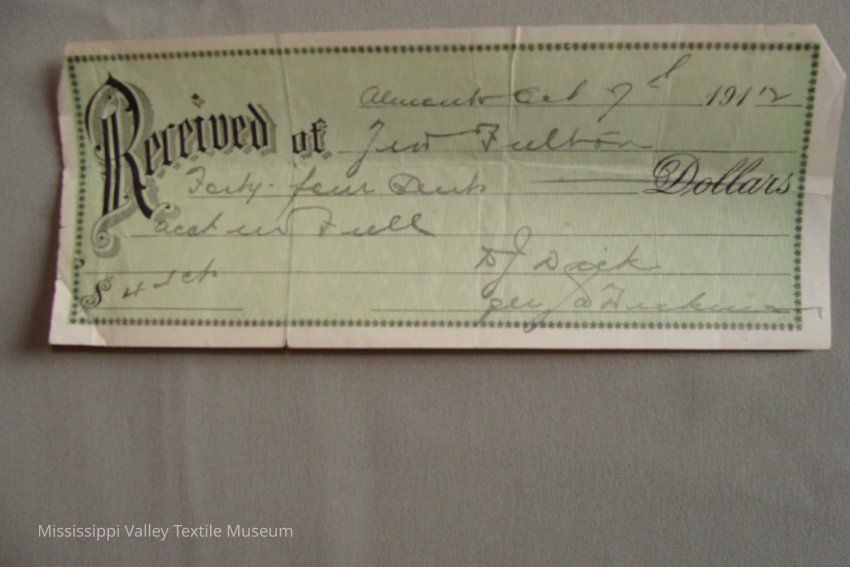 Almonte Oct 7th 1912
Received of Geo Fulton
Forty-four Cents Dollars
acct in Full
D J Dick
$ 44 cts per
Mississippi Valley Textile Museum